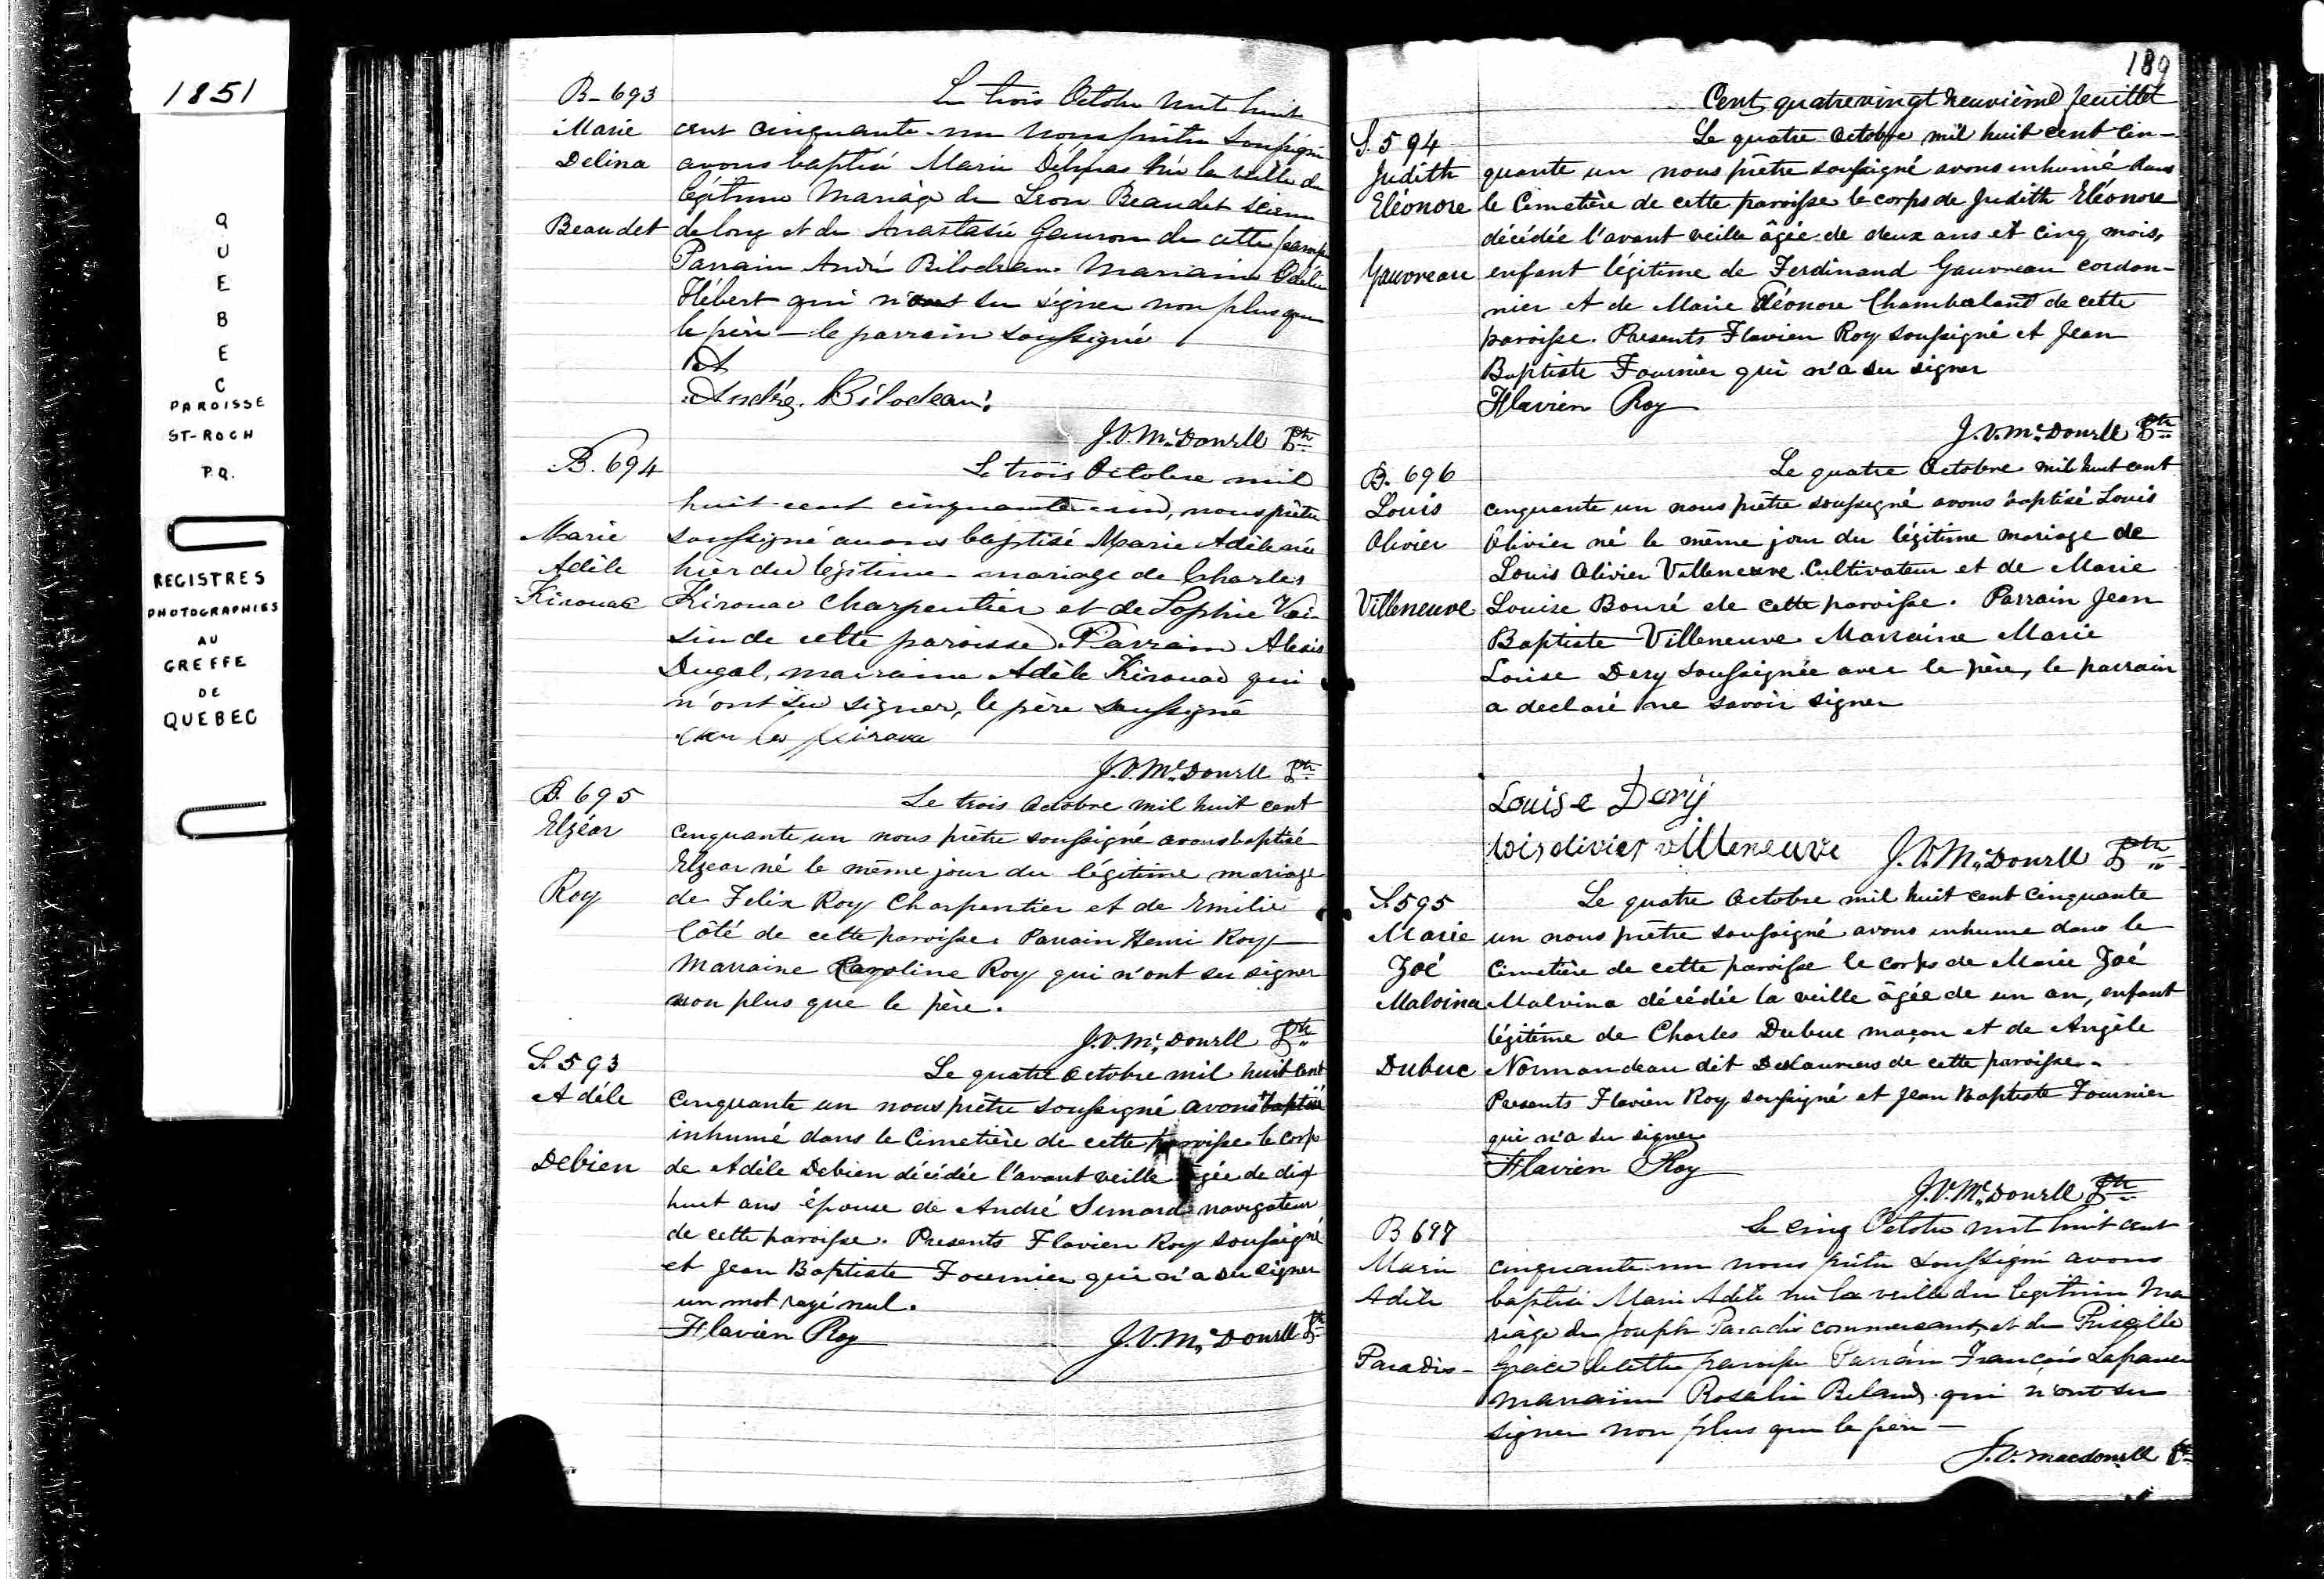 1851
QUEBEC
PAROISSE
ST-ROCH
P.Q.
REGISTRES
PHOTOGRAPHIES
AU
GREFFE
DE
QUEBEC
B-693
Marie
Delina
Beaudet
Le trois Octobre mil huit
cent cinquante-un nous prêtre soussigné
avons baptisé Marie née la veille du
légitime mariage de Léon Beaudet scieur
de long et de Anastasie Gauron de cette paroisse
Parrain André Bilodeau. Marraine Odelie
Hébert qui n'ont su signer non plus que
le père - le parrain soussigné
André Bilodeau
J.V. McDonell Ptre
B. 694
Marie
Adèle
Kirouac
Le trois Octobre mil
huit cent cinquante-un, nous prêtre
soussigné avons baptisé Marie Adèle née
hier du légitime mariage de Charles
Kirouac charpentier et de Sophie Voi-
sin de cette paroisse. Parrain Alexis
Dugal, marraine Adèle Kirouac qui
n'ont su signer, le père soussigné
J.V. McDonell Ptre
B. 695
Elzéar
Roy
Le trois Octobre mil huit cent
cinquante un nous prêtre soussigné avons baptisé
Elzear né le même jour du légitime mariage
de Felix Roy Charpentier et de Emilie
Côté de cette paroisse. Parrain Henri Roy
Marraine Caroline Roy qui n'ont su signer
non plus que le père.
J.V. McDonell Ptre
S. 593
Adéle
Debien
Le quatre Octobre mil huit cent
cinquante un nous prêtre soussigné avons baptisé
inhumé dans le Cimetière de cette paroisse le corps
de Adèle Debien décédée l'avant veille âgée de dix
huit ans épouse de André Simard navigateur
de cette paroisse. Presents Flavien Roy soussigné
et Jean Baptiste Fournier qui n'a su signer
un mot rayé nul.
Flavien Roy
J.V. McDonell Ptre
189
Cent quatrevingt neuvième feuillet
S. 594
Judith
Eléonore
Gauvreau
Le quatre Octobre mil huit cent cin-
quante un nous prêtre soussigné avons inhumé dans
le Cimetière de cette paroisse le corps de Judith Eléonore
décédée l'avant veille âgée de deux ans et cinq mois,
enfant légitime de Ferdinand Gauvreau cordon-
nier et de Marie Eléonore Chamberland de cette
paroisse. Presents Flavien Roy soussigné et Jean
Baptiste Fournier qui n'a su signer
Flavien Roy
J.V. McDonell Ptre
B. 696
Louis
Olivier
Villeneuve
Le quatre Octobre mil huit cent
cinquante un nous prêtre soussigné avons baptisé Louis
Olivier né le même jour du légitime mariage de
Louis Olivier Villeneuve Cultivateur et de Marie
Louise Bouré de cette paroisse. Parrain Jean
Baptiste Villeneuve Marraine Marie
Louise Dery soussignée avec le père, le parrain
a declaré ne savoir signer
Louise Dery
loisolivier villeneuve
J.V. McDonell Ptre
S. 595
Marie
Zoé
Malvina
Dubuc
Le quatre Octobre mil huit cent cinquante
un nous prêtre soussigné avons inhumé dans le
Cimetière de cette paroisse le corps de Marie Zoé
Malvina décédée la veille âgée de un an, enfant
légitime de Charles Dubuc maçon et de Angèle
Normandeau dit Deslauriers de cette paroisse.
Presents Flavien Roy soussigné et Jean Baptiste Fournier
qui n'a su signer
Flavien Roy
J.V. McDonell Ptre
B 697
Marie
Adèle
Paradis
Le cinq Octobre mil huit cent
cinquante-un nous prêtre soussigné avons
baptisé Marie Adèle née la veille du légitime ma
riage de Joseph Paradis commercant et de Priscille
de cette paroisse Parrain François
marraine Rosalie Beland qui n'ont su
signer non plus que le père -
J.V. Macdonell Ptre